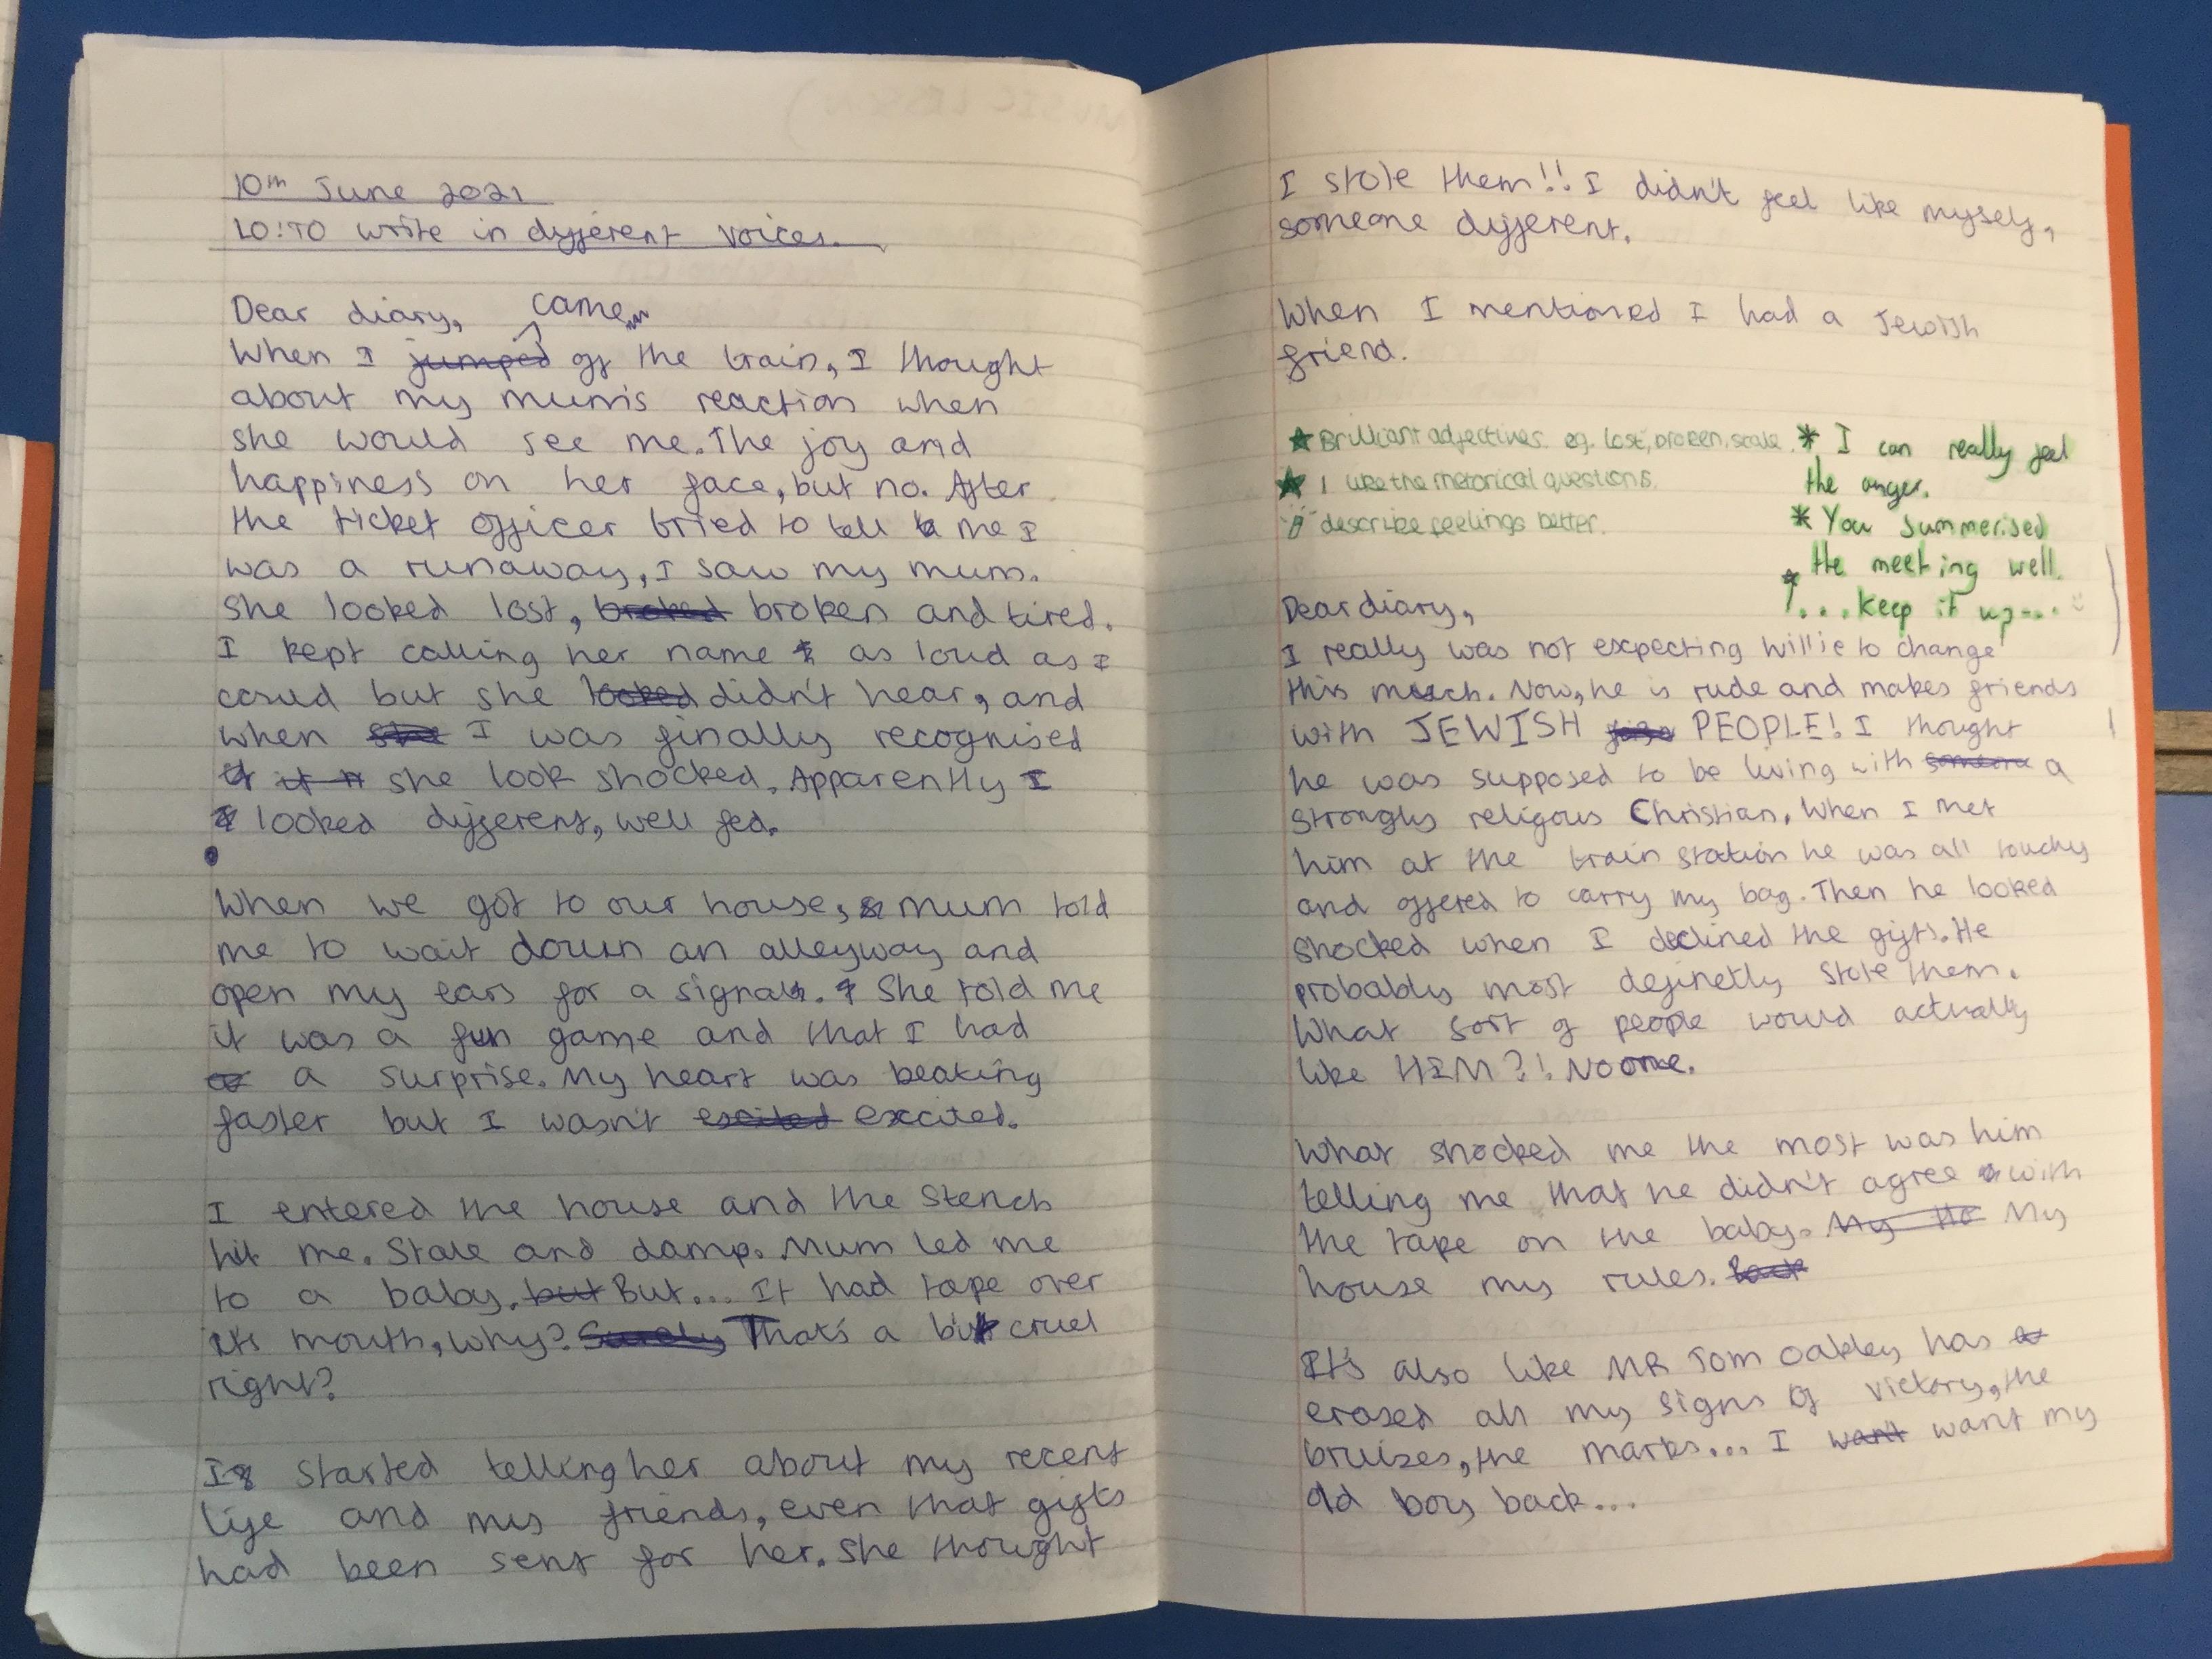 10th June 2021
LO: TO write in different voices.
Dear diary, came
When I jumped off the train, I thought
about my mum's reaction when
she would see me. The joy and
happiness on her face, but no. After
the ticket officer tried to tell me I
was a runaway, I saw my mum.
She looked lost, broked broken and tired.
I kept calling her name as loud as I
could but she looked didn't hear, and
when she I was finally recognised
it she look shocked. Apparently I
looked different, well fed.
When we got to our house, mum told
me to wait down an alleyway and
open my ears for a signal. She told me
it was a fun game and that I had
a surprise. My heart was beating
faster but I wasn't escited excited.
I entered the house and the stench
hit me. Stale and damp. Mum led me
to a baby, but But... It had tape over
it's mouth, why? Surely That's a bit cruel
right?
I started telling her about my recent
life and my friends, even that gifts
had been sent for her. She thought
I stole them!! I didn't feel like myself,
someone different.
When I mentioned I had a Jewish
friend.
★ Brilliant adjectives. eg. lost, broken, stale.
★ I like the rhetorical questions.
describe feelings better.
* I can really feel
the anger.
* You summerised
the meeting well.
... Keep it up...
Dear diary,
I really was not expecting Willie to change
this much. Now, he is rude and makes friends
with JEWISH PEOPLE! I thought
he was supposed to be living with someone a
strongly religous Christian. When I met
him at the train station he was all touchy
and offered to carry my bag. Then he looked
shocked when I declined the gifts. He
probably most definetly stole them.
What sort of people would actually
like HIM?! No one.
What shocked me the most was him
telling me that he didn't agree with
the tape on the baby. My Ho My
house my rules. Back
It's also like MR Tom Oakley has
erased all my signs of victory, the
bruises, the marks... I want want my
old boy back...